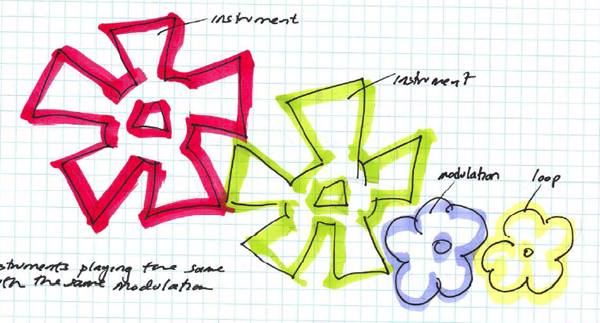 instrument
instrument
modulation
loop
struments playing the same
th the same modulation